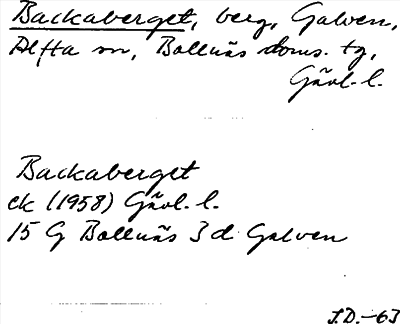 Backaberget, berg, Galven,
Alfta sn, Bollnäs doms. tg,
Gävl. l.
Backaberget
ek (1958) Gävl. l.
15 G Bollnäs 3 d Galven
S.D.-63